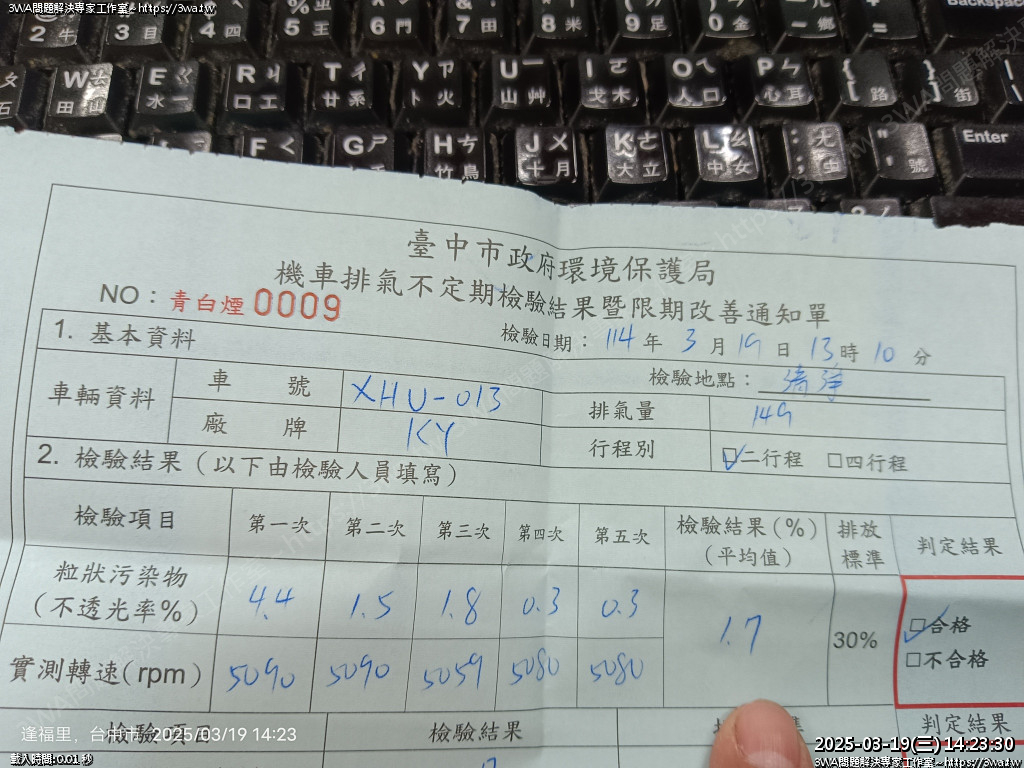 3WA問題解決專家工作室~https://3wa.tw
2 牛 3 目 4 四 % 5 王 6 門 & 7 田 8 米 9 足 0 金 鄉 + = Backspace
W 田 E ㄍ 水 R ㄐ 口 工 T ㄔ 廿 糸 Y ㄗ 卜 火 U 山 艸 I ㄛ 戈 木 O ㄟ 人 口 P ㄣ 心 耳 { [ 路 } ] 街
F ㄑ G ㄕ H ㄘ 竹 鳥 J ㄨ 十 月 K ㄜ 大 立 L ㄠ 中 女 : ; ㄤ 虫 " ' 號 Enter
臺中市政府環境保護局
機車排氣不定期檢驗結果暨限期改善通知單
NO：青白煙 0009
檢驗日期：114 年 3 月 19 日 13 時 10 分
1. 基本資料
檢驗地點：清淨
車輛資料 車 號 XHU-013 排氣量 149
廠 牌 KY 行程別 ☑二行程 □四行程
2. 檢驗結果（以下由檢驗人員填寫）
檢驗項目 第一次 第二次 第三次 第四次 第五次 檢驗結果(%)（平均值） 排放標準 判定結果
粒狀污染物（不透光率%） 4.4 1.5 1.8 0.3 0.3 1.7 30% ☑合格
□不合格
實測轉速(rpm) 5090 5090 5059 5080 5080
檢驗項目 檢驗結果 判定結果
逢福里，台中市 2025/03/19 14:23
載入時間:0.01 秒
2025-03-19(三) 14:23:30
3WA問題解決專家工作室~https://3wa.tw